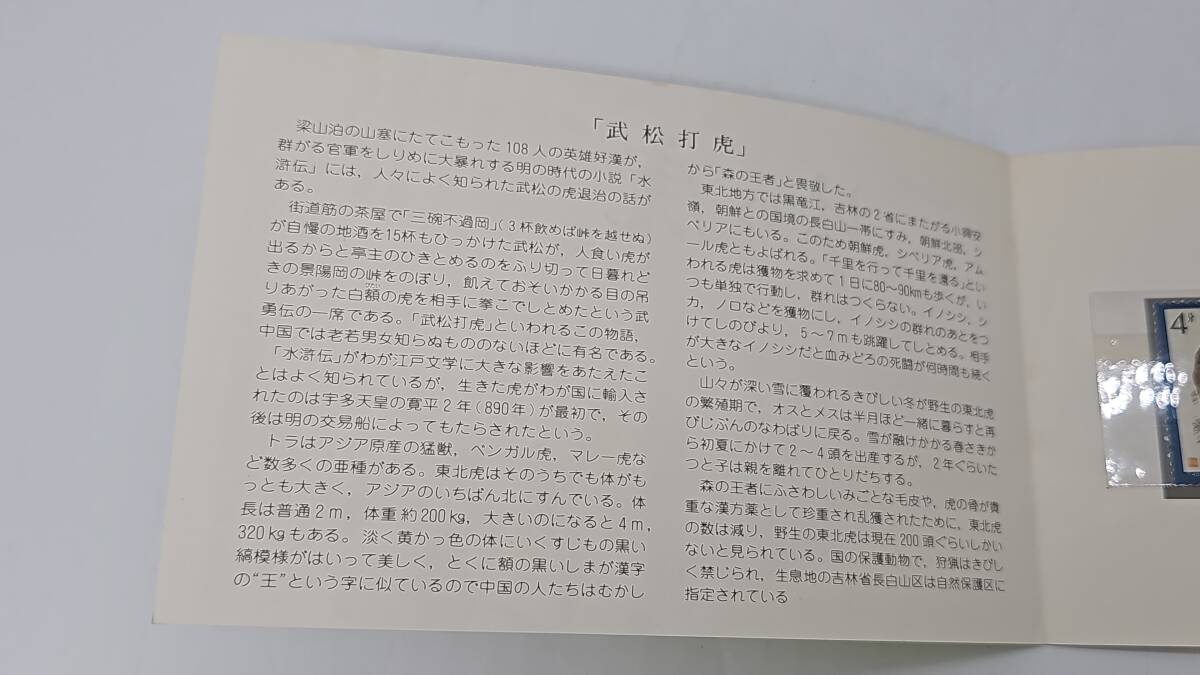 「武松打虎」
梁山泊の山塞にたてこもった108人の英雄好漢が，
群がる官軍をしりめに大暴れする明の時代の小説「水
滸伝」には，人々によく知られた武松の虎退治の話が
ある。
街道筋の茶屋で「三碗不過岡」（3杯飲めば峠を越せぬ）
が自慢の地酒を15杯もひっかけた武松が，人食い虎が
出るからと亭主のひきとめるのをふり切って日暮れど
きの景陽岡の峠をのぼり，飢えておそいかかる目の吊
りあがった白額の虎を相手に拳こでしとめたという武
勇伝の一席である。「武松打虎」といわれるこの物語，
中国では老若男女知らぬもののないほどに有名である。
「水滸伝」がわが江戸文学に大きな影響をあたえたこ
とはよく知られているが，生きた虎がわが国に輸入さ
れたのは宇多天皇の寛平2年（890年）が最初で，その
後は明の交易船によってもたらされたという。
トラはアジア原産の猛獣，ベンガル虎，マレー虎な
ど数多くの亜種がある。東北虎はそのうちでも体がも
っとも大きく，アジアのいちばん北にすんでいる。体
長は普通2m，体重約200kg，大きいのになると4m，
320kgもある。淡く黄かっ色の体にいくすじもの黒い
縞模様がはいって美しく，とくに額の黒いしまが漢字
の“王”という字に似ているので中国の人たちはむかし
から「森の王者」と畏敬した。
東北地方では黒竜江，吉林の2省にまたがる小興安
嶺，朝鮮との国境の長白山一帯にすみ，朝鮮北部，シ
ベリアにもいる。このため朝鮮虎，シベリア虎，アム
ール虎ともよばれる。「千里を行って千里を還る」とい
われる虎は獲物を求めて1日に80〜90kmも歩くが，い
つも単独で行動し，群れはつくらない。イノシシ，シ
カ，ノロなどを獲物にし，イノシシの群れのあとをつ
けてしのびより，5〜7mも跳躍してしとめる。相手
が大きなイノシシだと血みどろの死闘が何時間も続く
という。
山々が深い雪に覆われるきびしい冬が野生の東北虎
の繁殖期で，オスとメスは半月ほど一緒に暮らすと再
びじぶんのなわばりに戻る。雪が融けかかる春さきか
ら初夏にかけて2〜4頭を出産するが，2年ぐらいた
つと子は親を離れてひとりだちする。
森の王者にふさわしいみごとな毛皮や，虎の骨が貴
重な漢方薬として珍重され乱獲されたために，東北虎
の数は減り，野生の東北虎は現在200頭ぐらいしかい
ないと見られている。国の保護動物で，狩猟はきびし
く禁じられ，生息地の吉林省長白山区は自然保護区に
指定されている
4分